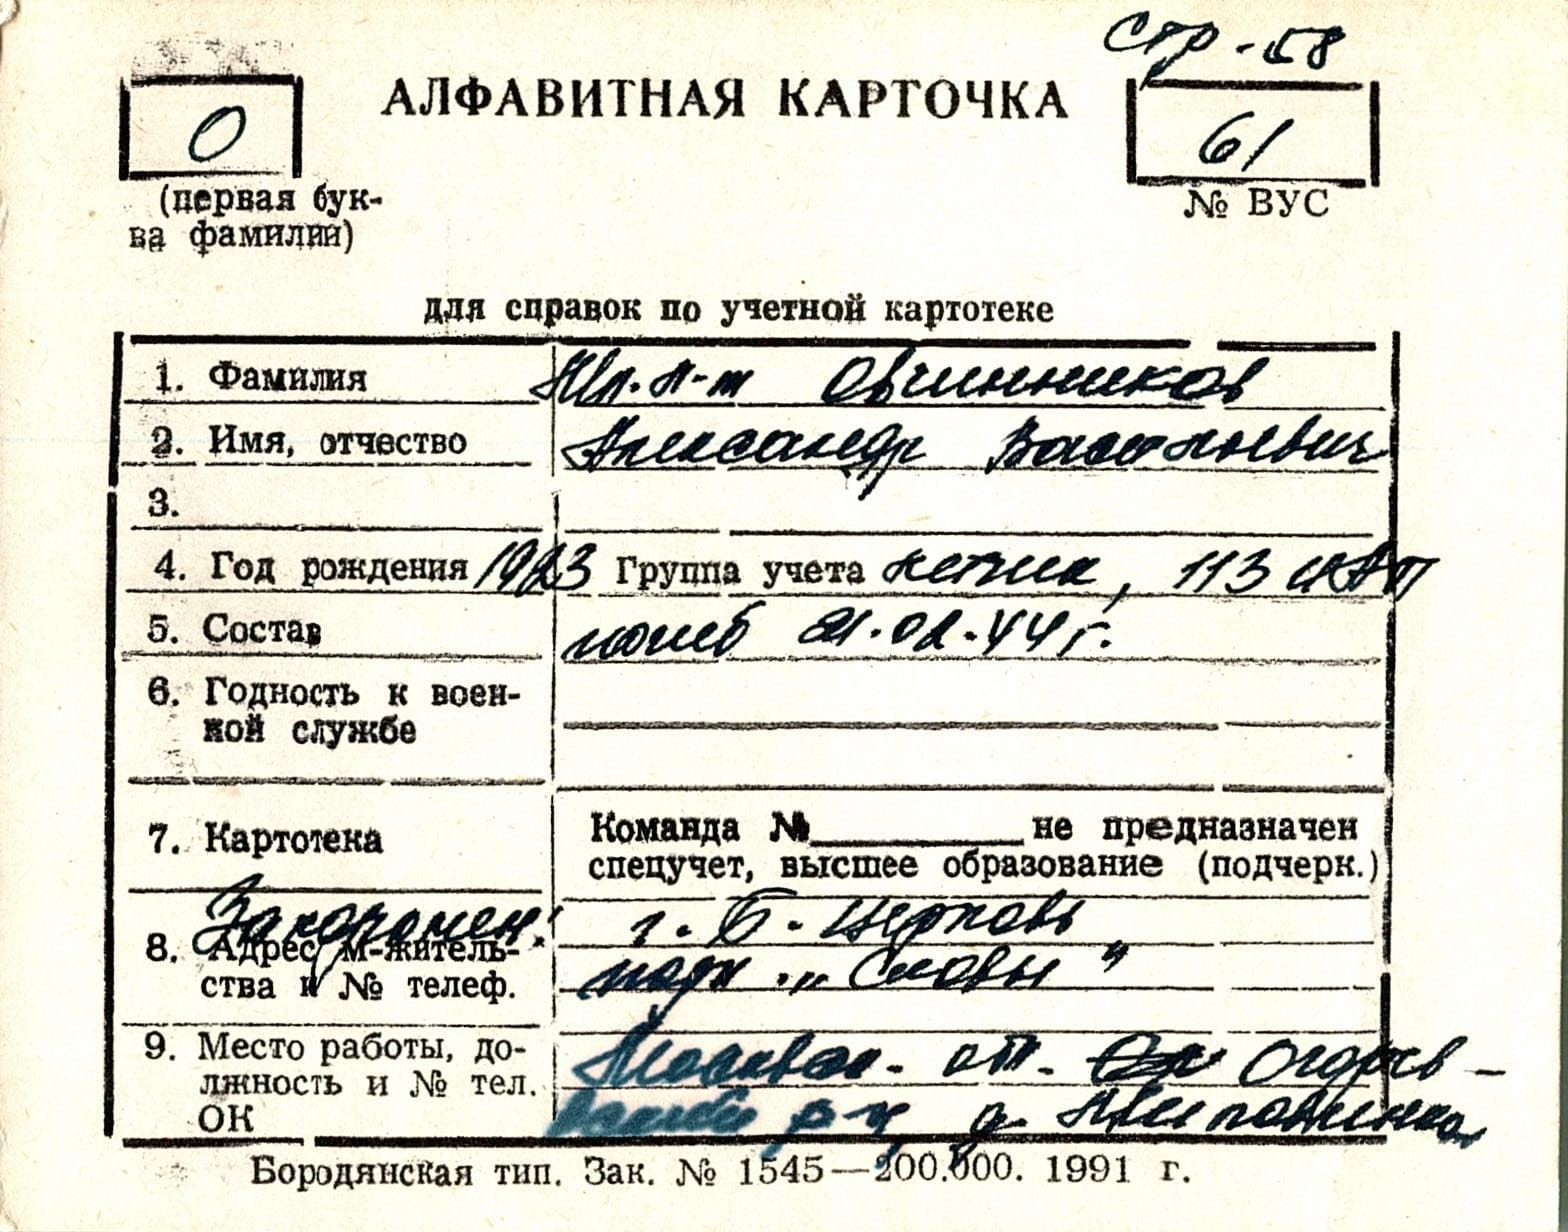 Стр - 58
О
АЛФАВИТНАЯ КАРТОЧКА
61
(первая бук-
ва фамилии)
№ ВУС
для справок по учетной картотеке
1. Фамилия Мл. л-т Овчинников
2. Имя, отчество Александр Васильевич
3.
4. Год рождения 1923 Группа учета летчик, 113
5. Состав погиб 21.02.44 г.
6. Годность к воен-
ной службе
7. Картотека
Команда № не предназначен
спецучет, высшее образование (подчерк.)
Захоронен: г. Б. Церковь
8. Адрес м-житель-
ства и № телеф.
парк „Славы"
9. Место работы, до-
лжность и № тел.
ОК
Москвск. от.
р-н, д.
Бородянская тип. Зак. № 1545—200.000. 1991 г.